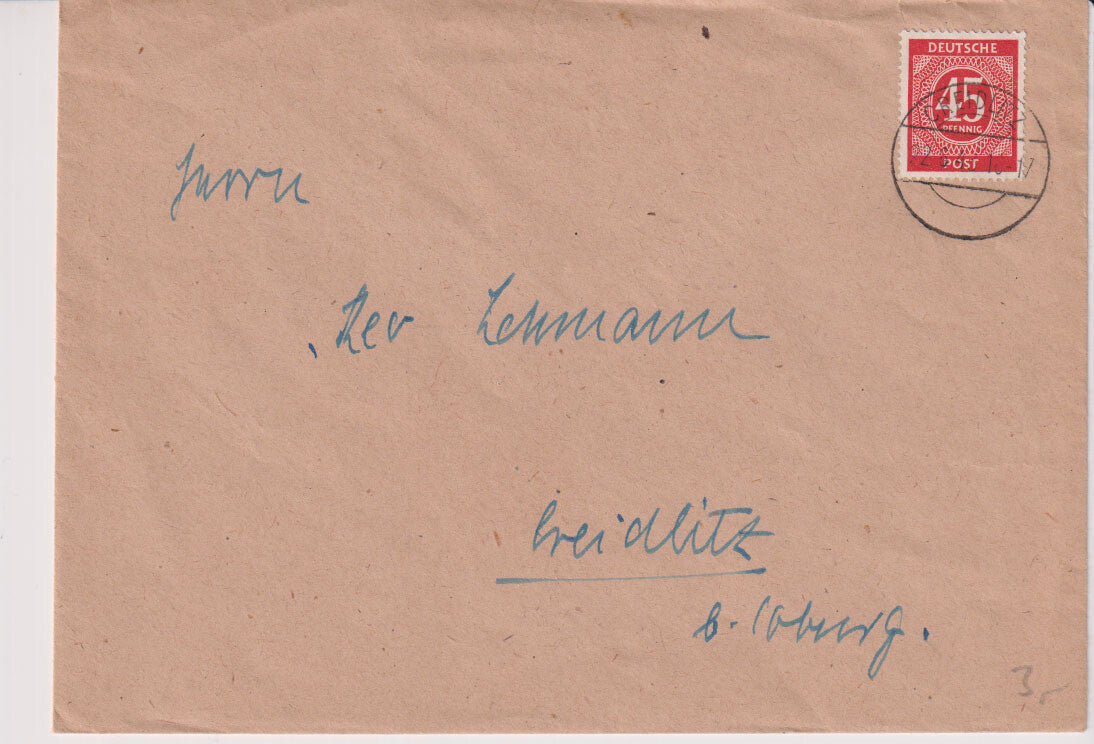 DEUTSCHE
45
PFENNIG
POST
Herrn
Rev Lehmann
Creidlitz
b. Coburg.
3,-